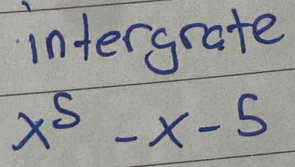 intergrate
x⁵ - x - 5